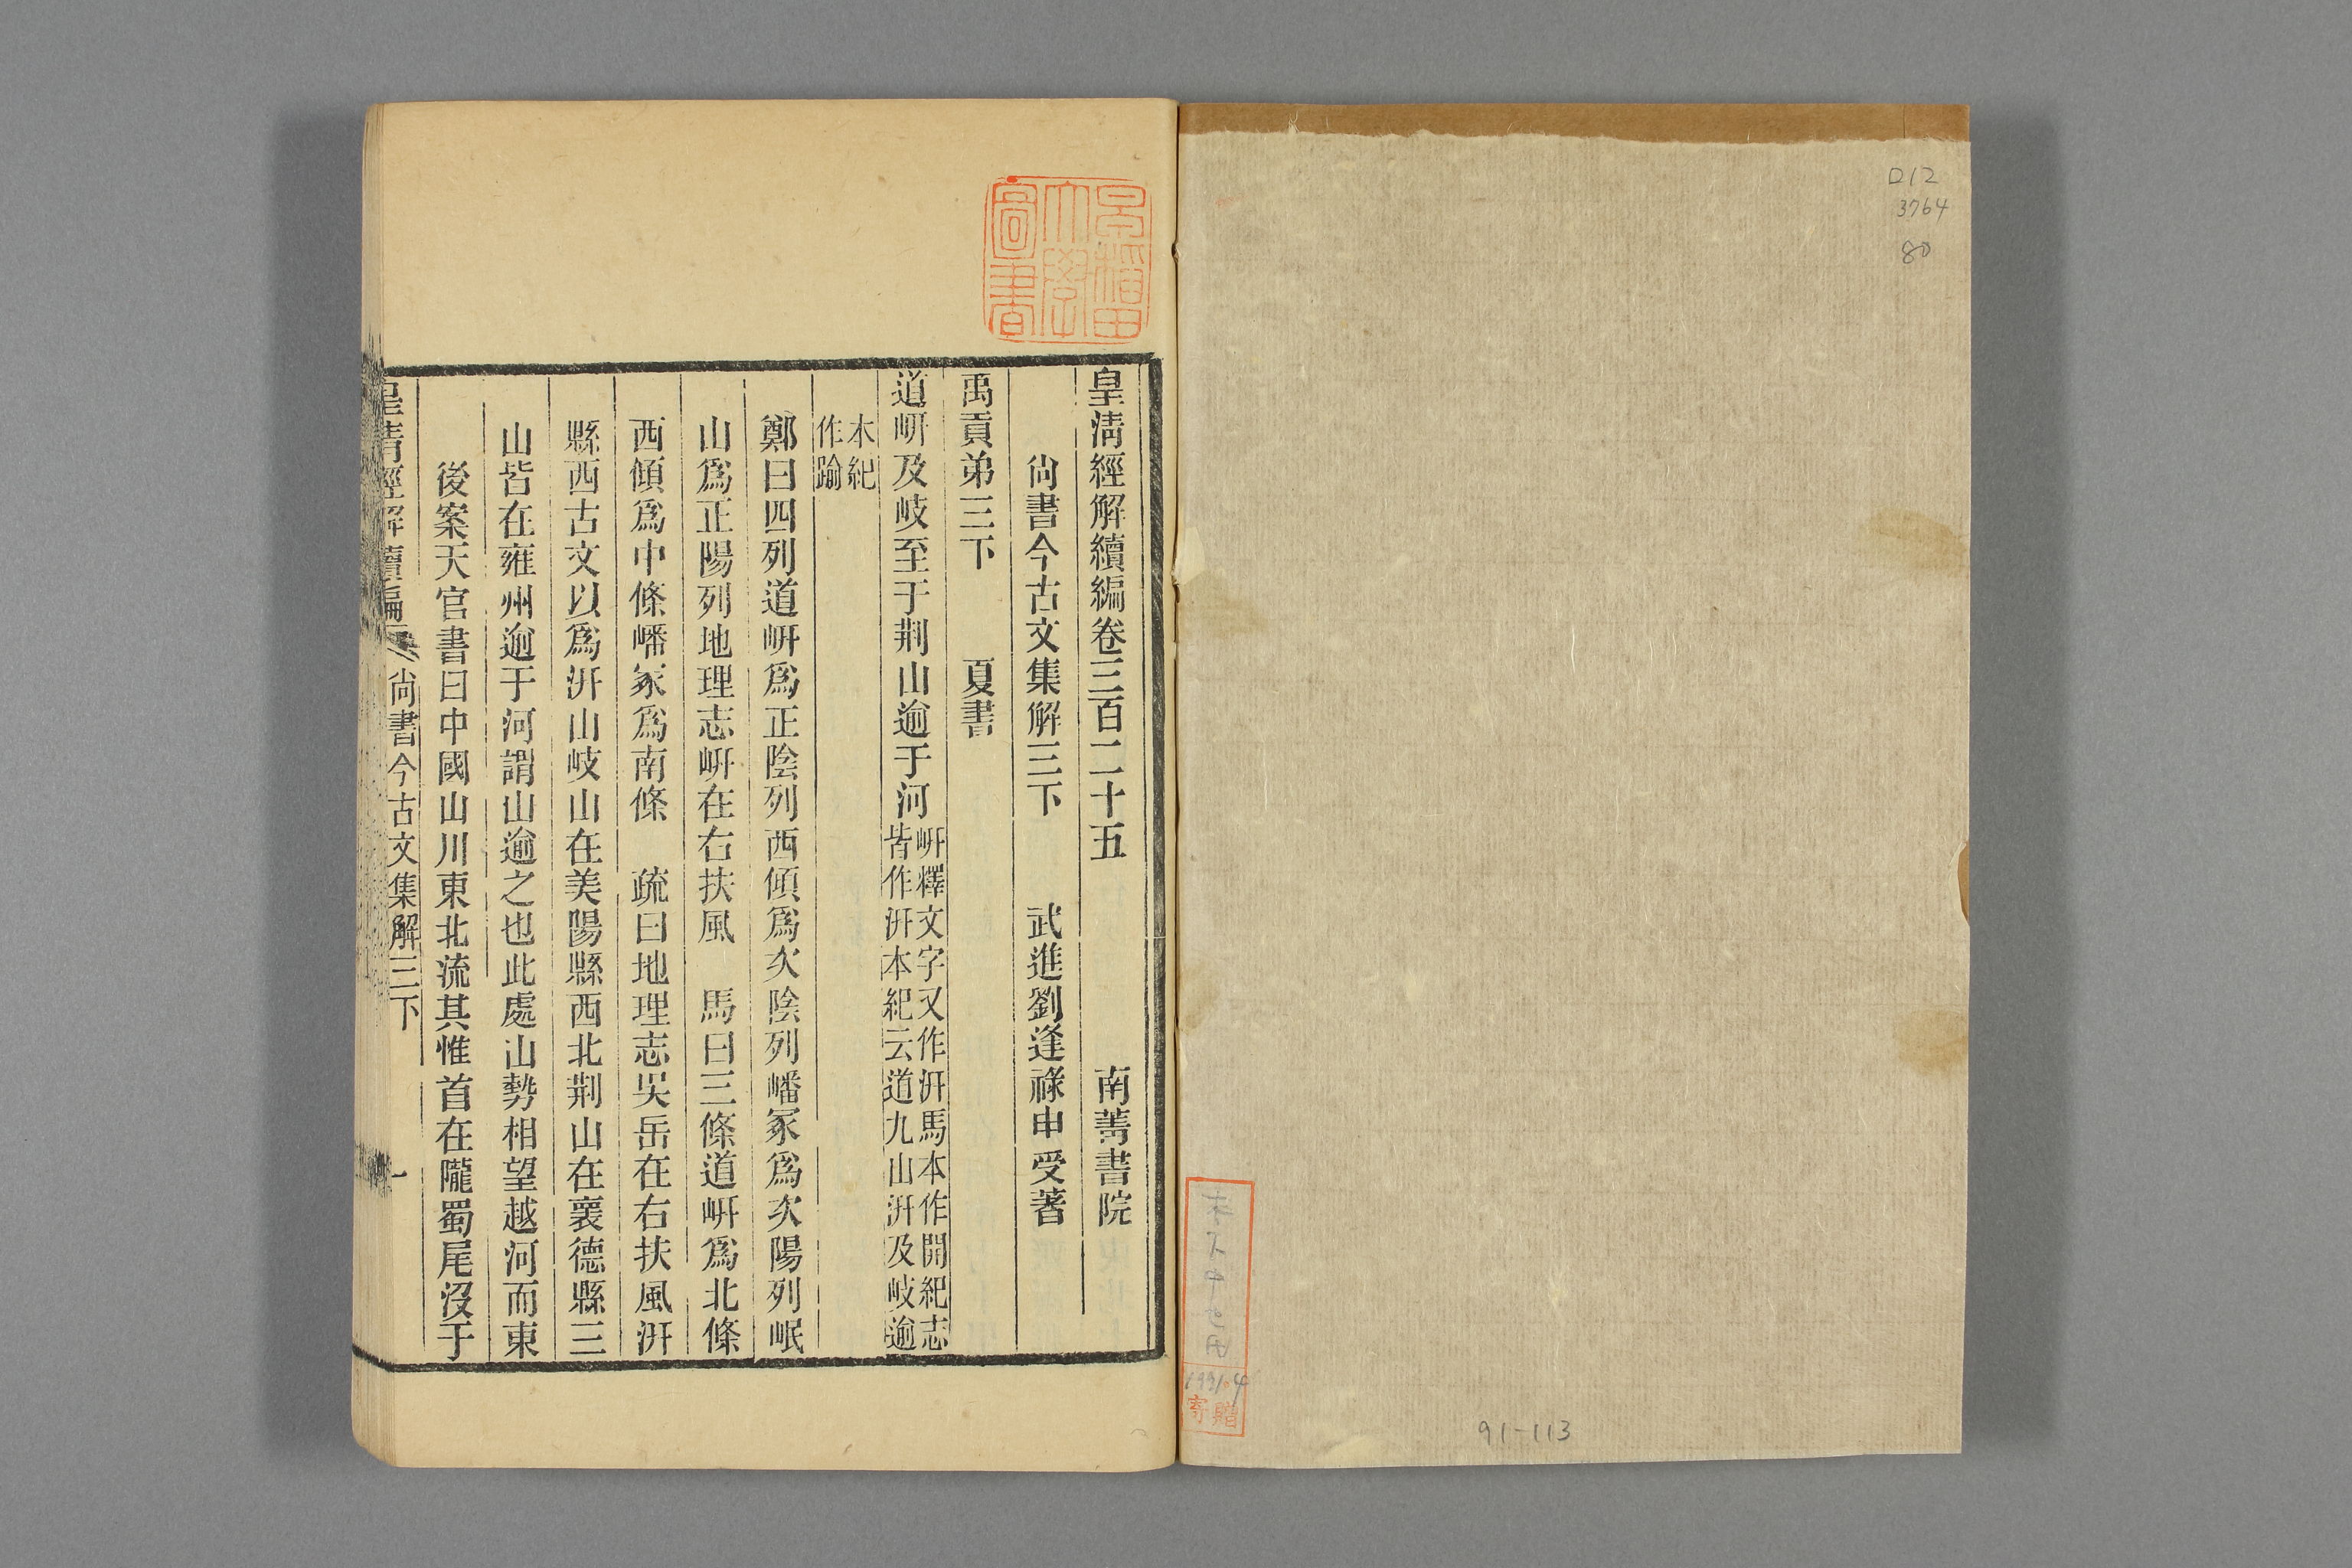 D12
3764
80
1991.4
寄贈
91-113
早稲田
大學
圖書
皇清經解續編卷三百二十五 南菁書院
尚書今古文集解三下 武進劉逢祿申受著
禹貢弟三下 夏書
道岍及岐至于荆山逾于河
岍釋文字又作汧馬本作開紀志
皆作汧本紀云道九山汧及岐逾
本紀
作踰
鄭曰四列道岍爲正陰列西傾爲次陰列嶓冢爲次陽列岷
山爲正陽列地理志岍在右扶風 馬曰三條道岍爲北條
西傾爲中條嶓冢爲南條 疏曰地理志吳岳在右扶風汧
縣西古文以爲汧山岐山在美陽縣西北荆山在襄德縣三
山皆在雍州逾于河謂山逾之也此處山勢相望越河而東
後案天官書曰中國山川東北流其惟首在隴蜀尾沒于
皇清經解續編 尚書今古文集解三下 一